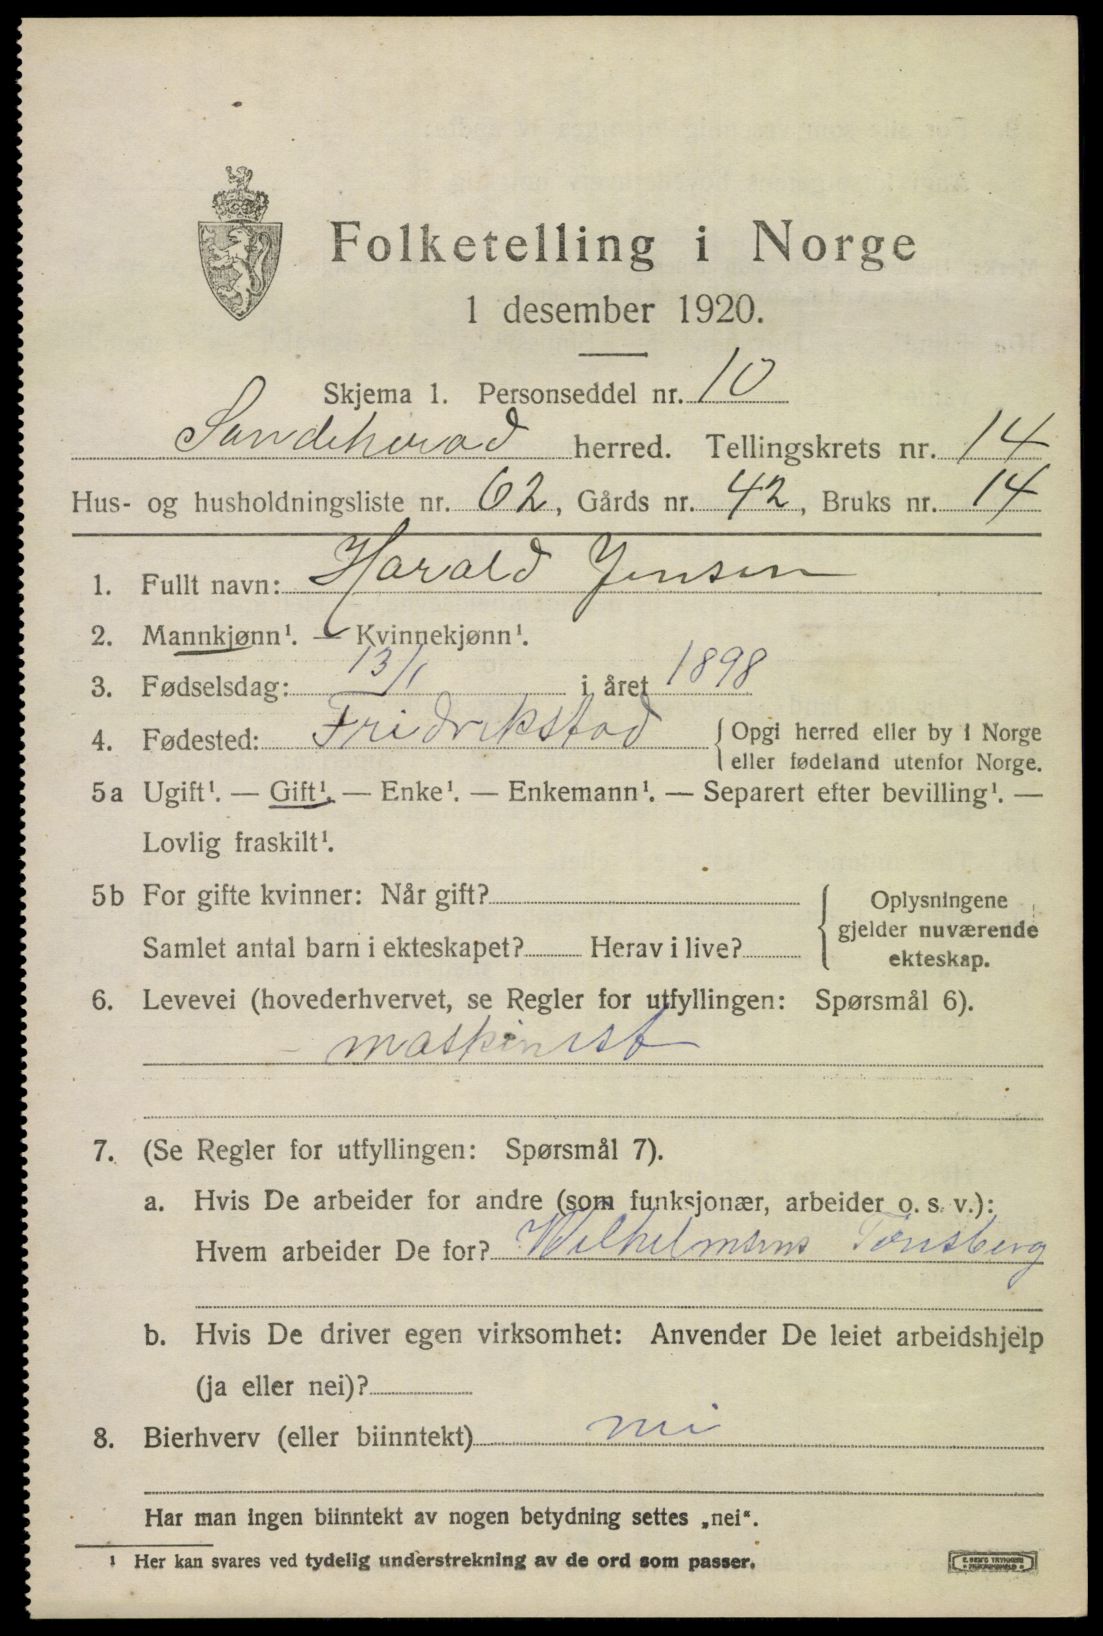 Folketelling i Norge
1 desember 1920.
Skjema 1. Personseddel nr. 10
Sandeherad herred. Tellingskrets nr. 14
Hus- og husholdningsliste nr. 62, Gårds nr. 42, Bruks nr. 14
1. Fullt navn: Harald Jensen
2. Mannkjønn¹. — Kvinnekjønn¹.
3. Fødselsdag: 13/1 i året 1898
4. Fødested: Fridrikstad {Opgi herred eller by i Norge
eller fødeland utenfor Norge.
5a Ugift¹. — Gift¹. — Enke¹. — Enkemann¹. — Separert efter bevilling¹. —
Lovlig fraskilt¹.
5b For gifte kvinner: Når gift?
Samlet antal barn i ekteskapet? Herav i live?
{ Oplysningene
gjelder nuværende
ekteskap.
6. Levevei (hovederhvervet, se Regler for utfyllingen: Spørsmål 6).
maskinist
7. (Se Regler for utfyllingen: Spørsmål 7).
a. Hvis De arbeider for andre (som funksjonær, arbeider o. s. v.):
Hvem arbeider De for? Wilhelmsens Tønsberg
b. Hvis De driver egen virksomhet: Anvender De leiet arbeidshjelp
(ja eller nei)?
8. Bierhverv (eller biinntekt) nei
Har man ingen biinntekt av nogen betydning settes „nei“.
¹ Her kan svares ved tydelig understrekning av de ord som passer.